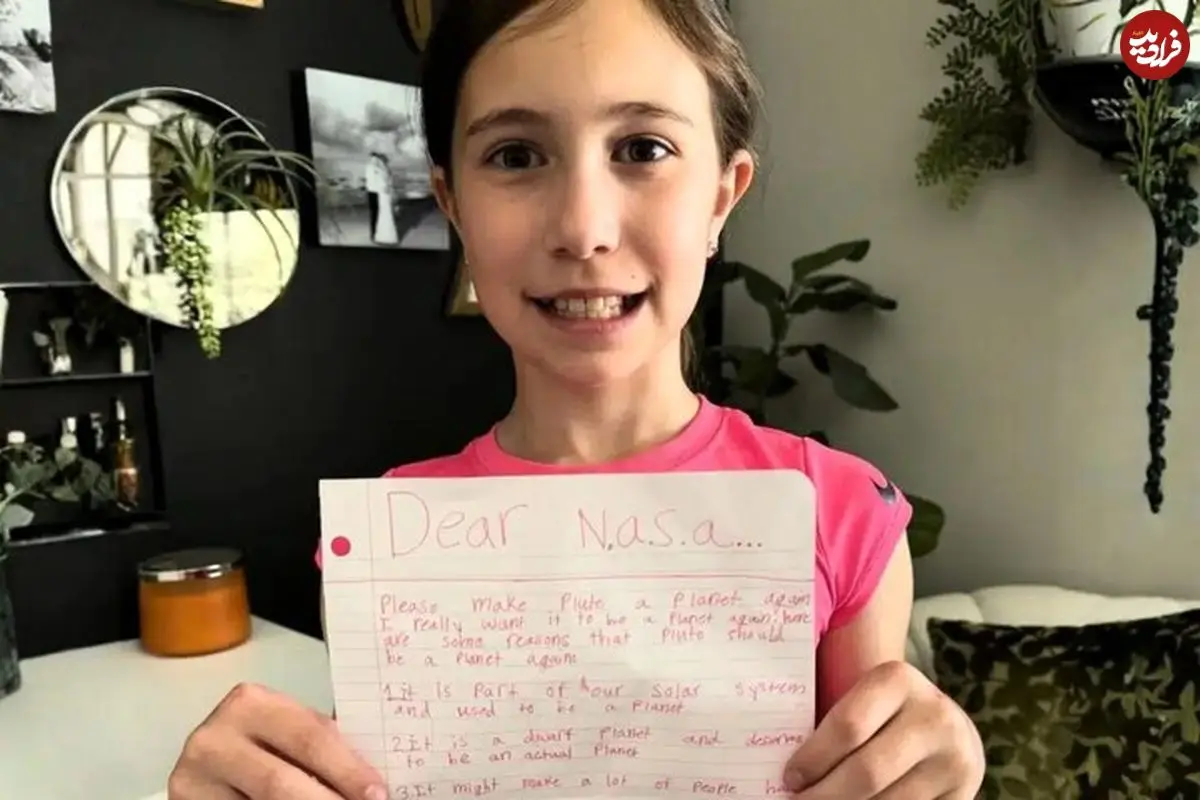 فرادید
Dear N.a.s.a...
Please make Pluto a Planet again
I really want it to be a Planet again! here
are some reasons that Pluto should
be a Planet again
1 it is part of hour solar system
and used to be a Planet
2 It is a dwarf Planet and deserves
to be an actual Planet
3. It might make a lot of people